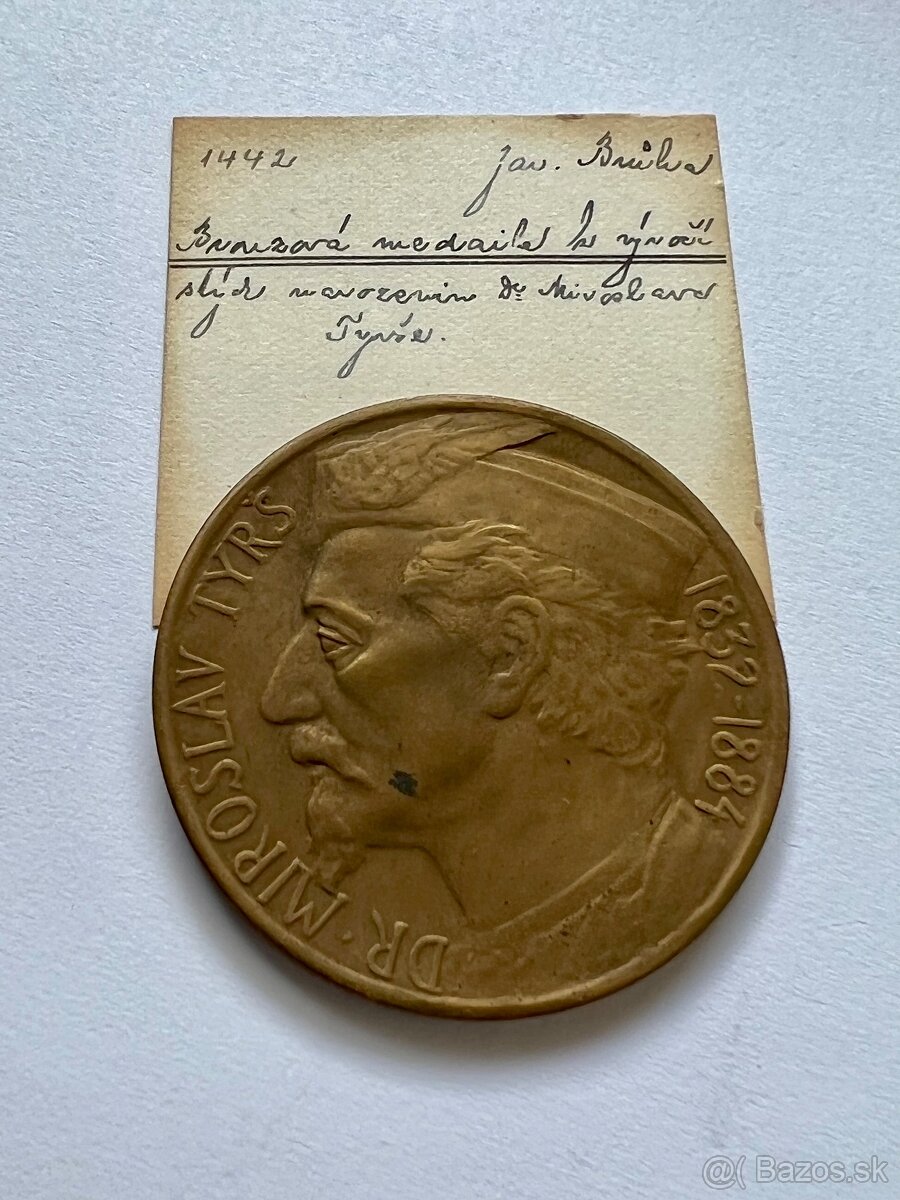 1442 Jar. Brůha
Bronzová medaile k výročí
stých narozenin Dr Miroslava
Tyrše.
DR. MIROSLAV TYRŠ
1832-1884
@( Bazos.sk